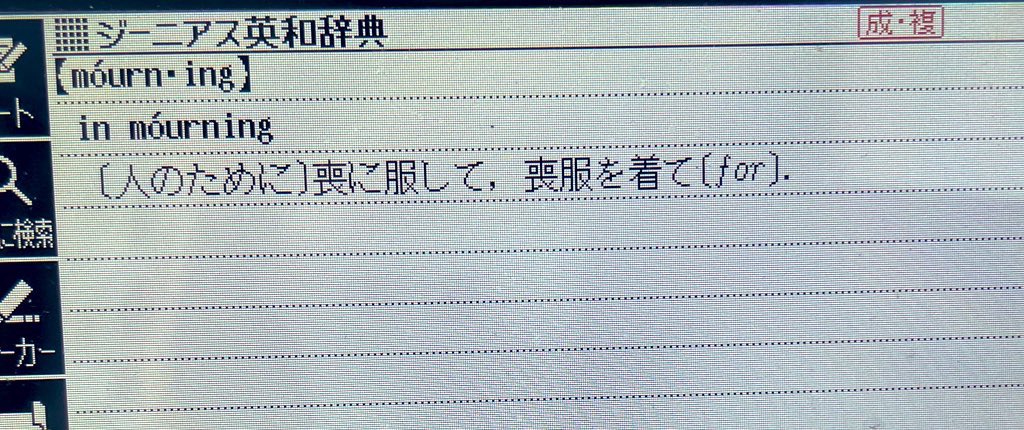 ジーニアス英和辞典 成・複
【móurn・ing】
in móurning
〔人のために〕喪に服して，喪服を着て〔for〕.
ート
に検索
ーカー